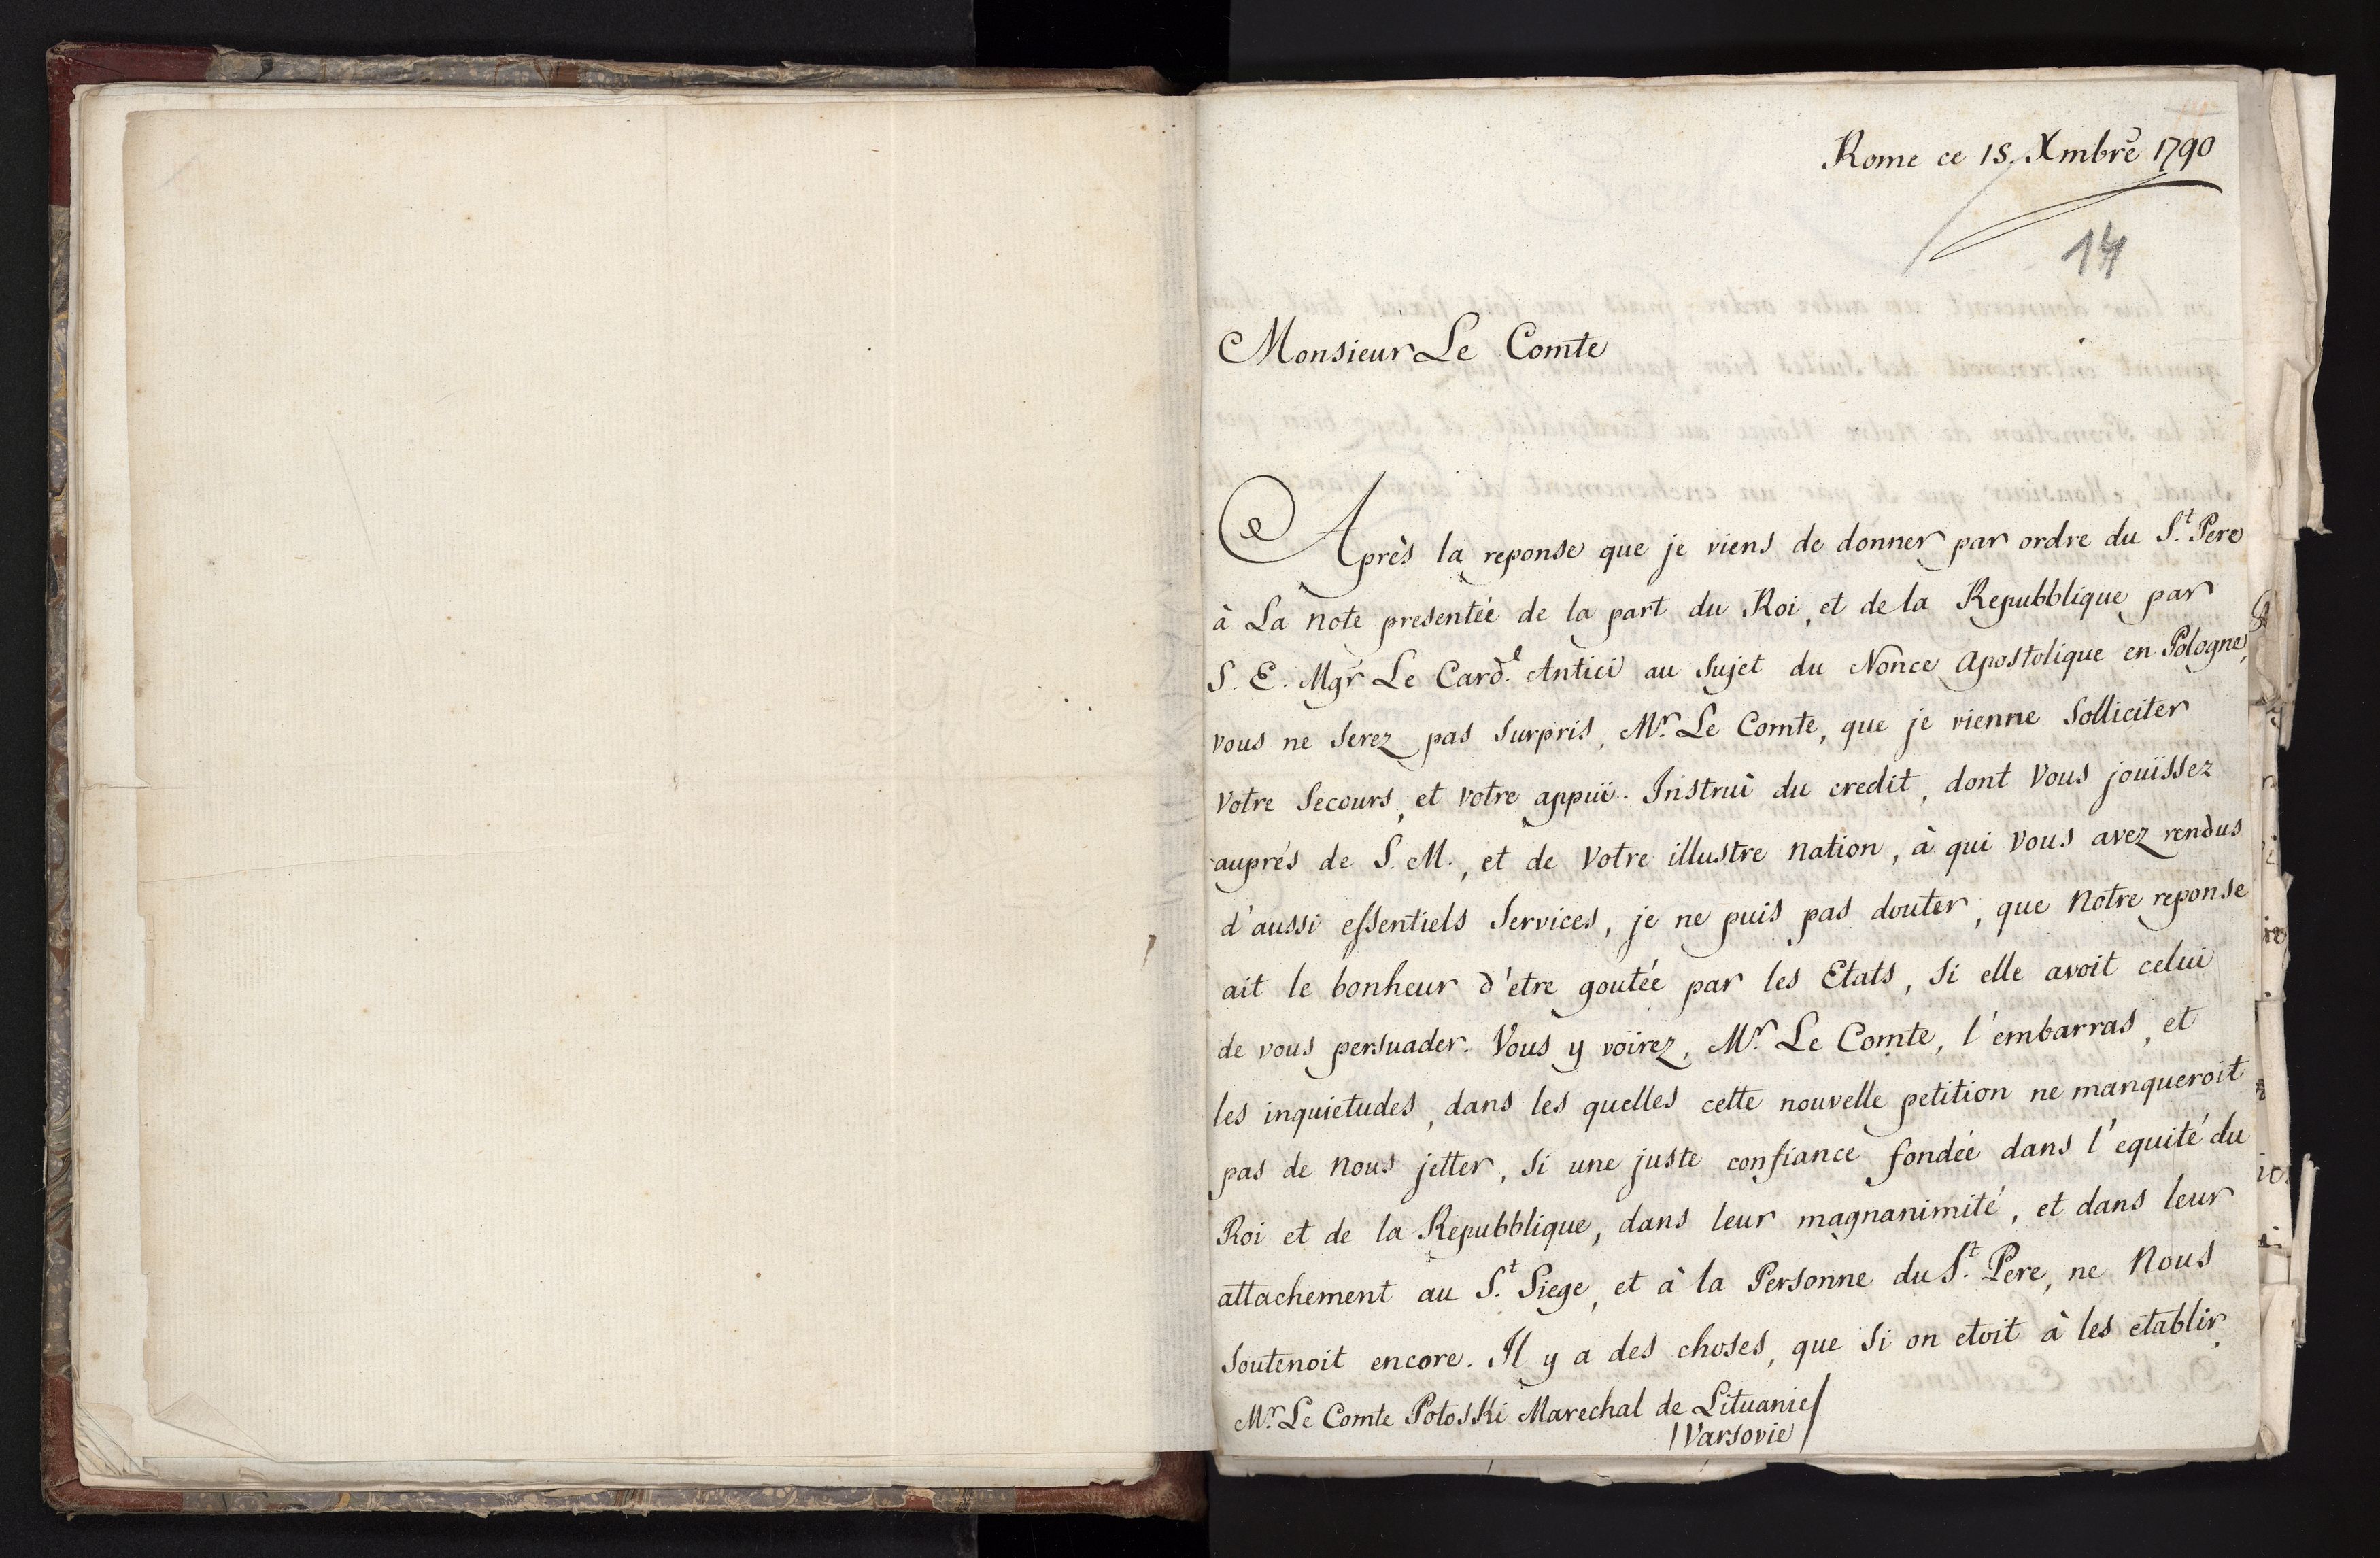 Rome ce 15. Xmbre 1790
14
Monsieur Le Comte
Après la reponse que je viens de donner par ordre du S.t Pere
à La note presentée de la part du Roi, et de la Repubblique par
S. E. Mgr Le Card.l Antici au sujet du Nonce Apostolique en Pologne,
vous ne serez pas surpris, M.r Le Comte, que je vienne solliciter
votre secours, et votre appui. Instrui du credit, dont vous jouïssez
auprés de S. M., et de votre illustre nation, à qui vous avez rendus
d'aussi essentiels services, je ne puis pas douter, que notre reponse
ait le bonheur d'etre goutée par les Etats, si elle avoit celui
de vous persuader. Vous y voirez, M.r Le Comte, l'embarras, et
les inquietudes, dans les quelles cette nouvelle petition ne manqueroit
pas de nous jetter, si une juste confiance fondée dans l'equité du
Roi et de la Repubblique, dans leur magnanimité, et dans leur
attachement au S.t Siege, et à la Personne du S.t Pere, ne nous
soutenoit encore. Il y a des choses, que si on etoit à les etablir,
M.r Le Comte Potoski Marechal de Lituanie/
/Varsovie/